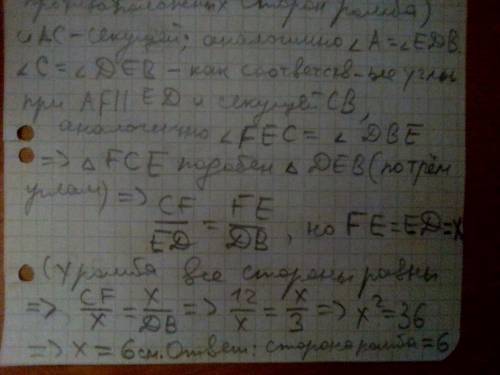 противоположных сторон ромба)
и AC - секущей; аналогично ∠A=∠EDB.
∠C=∠DEB - как соответств-ые углы
при AF||ED и секущей CB,
аналогично ∠FEC=∠DBE
=> △FCE подобен △DEB (по трём
углам) => CF/ED = FE/DB, но FE=ED=x
(у ромба все стороны равны
=> CF/x = x/DB => 12/x = x/3 => x²=36
=> x = 6 см. Ответ: сторона ромба = 6